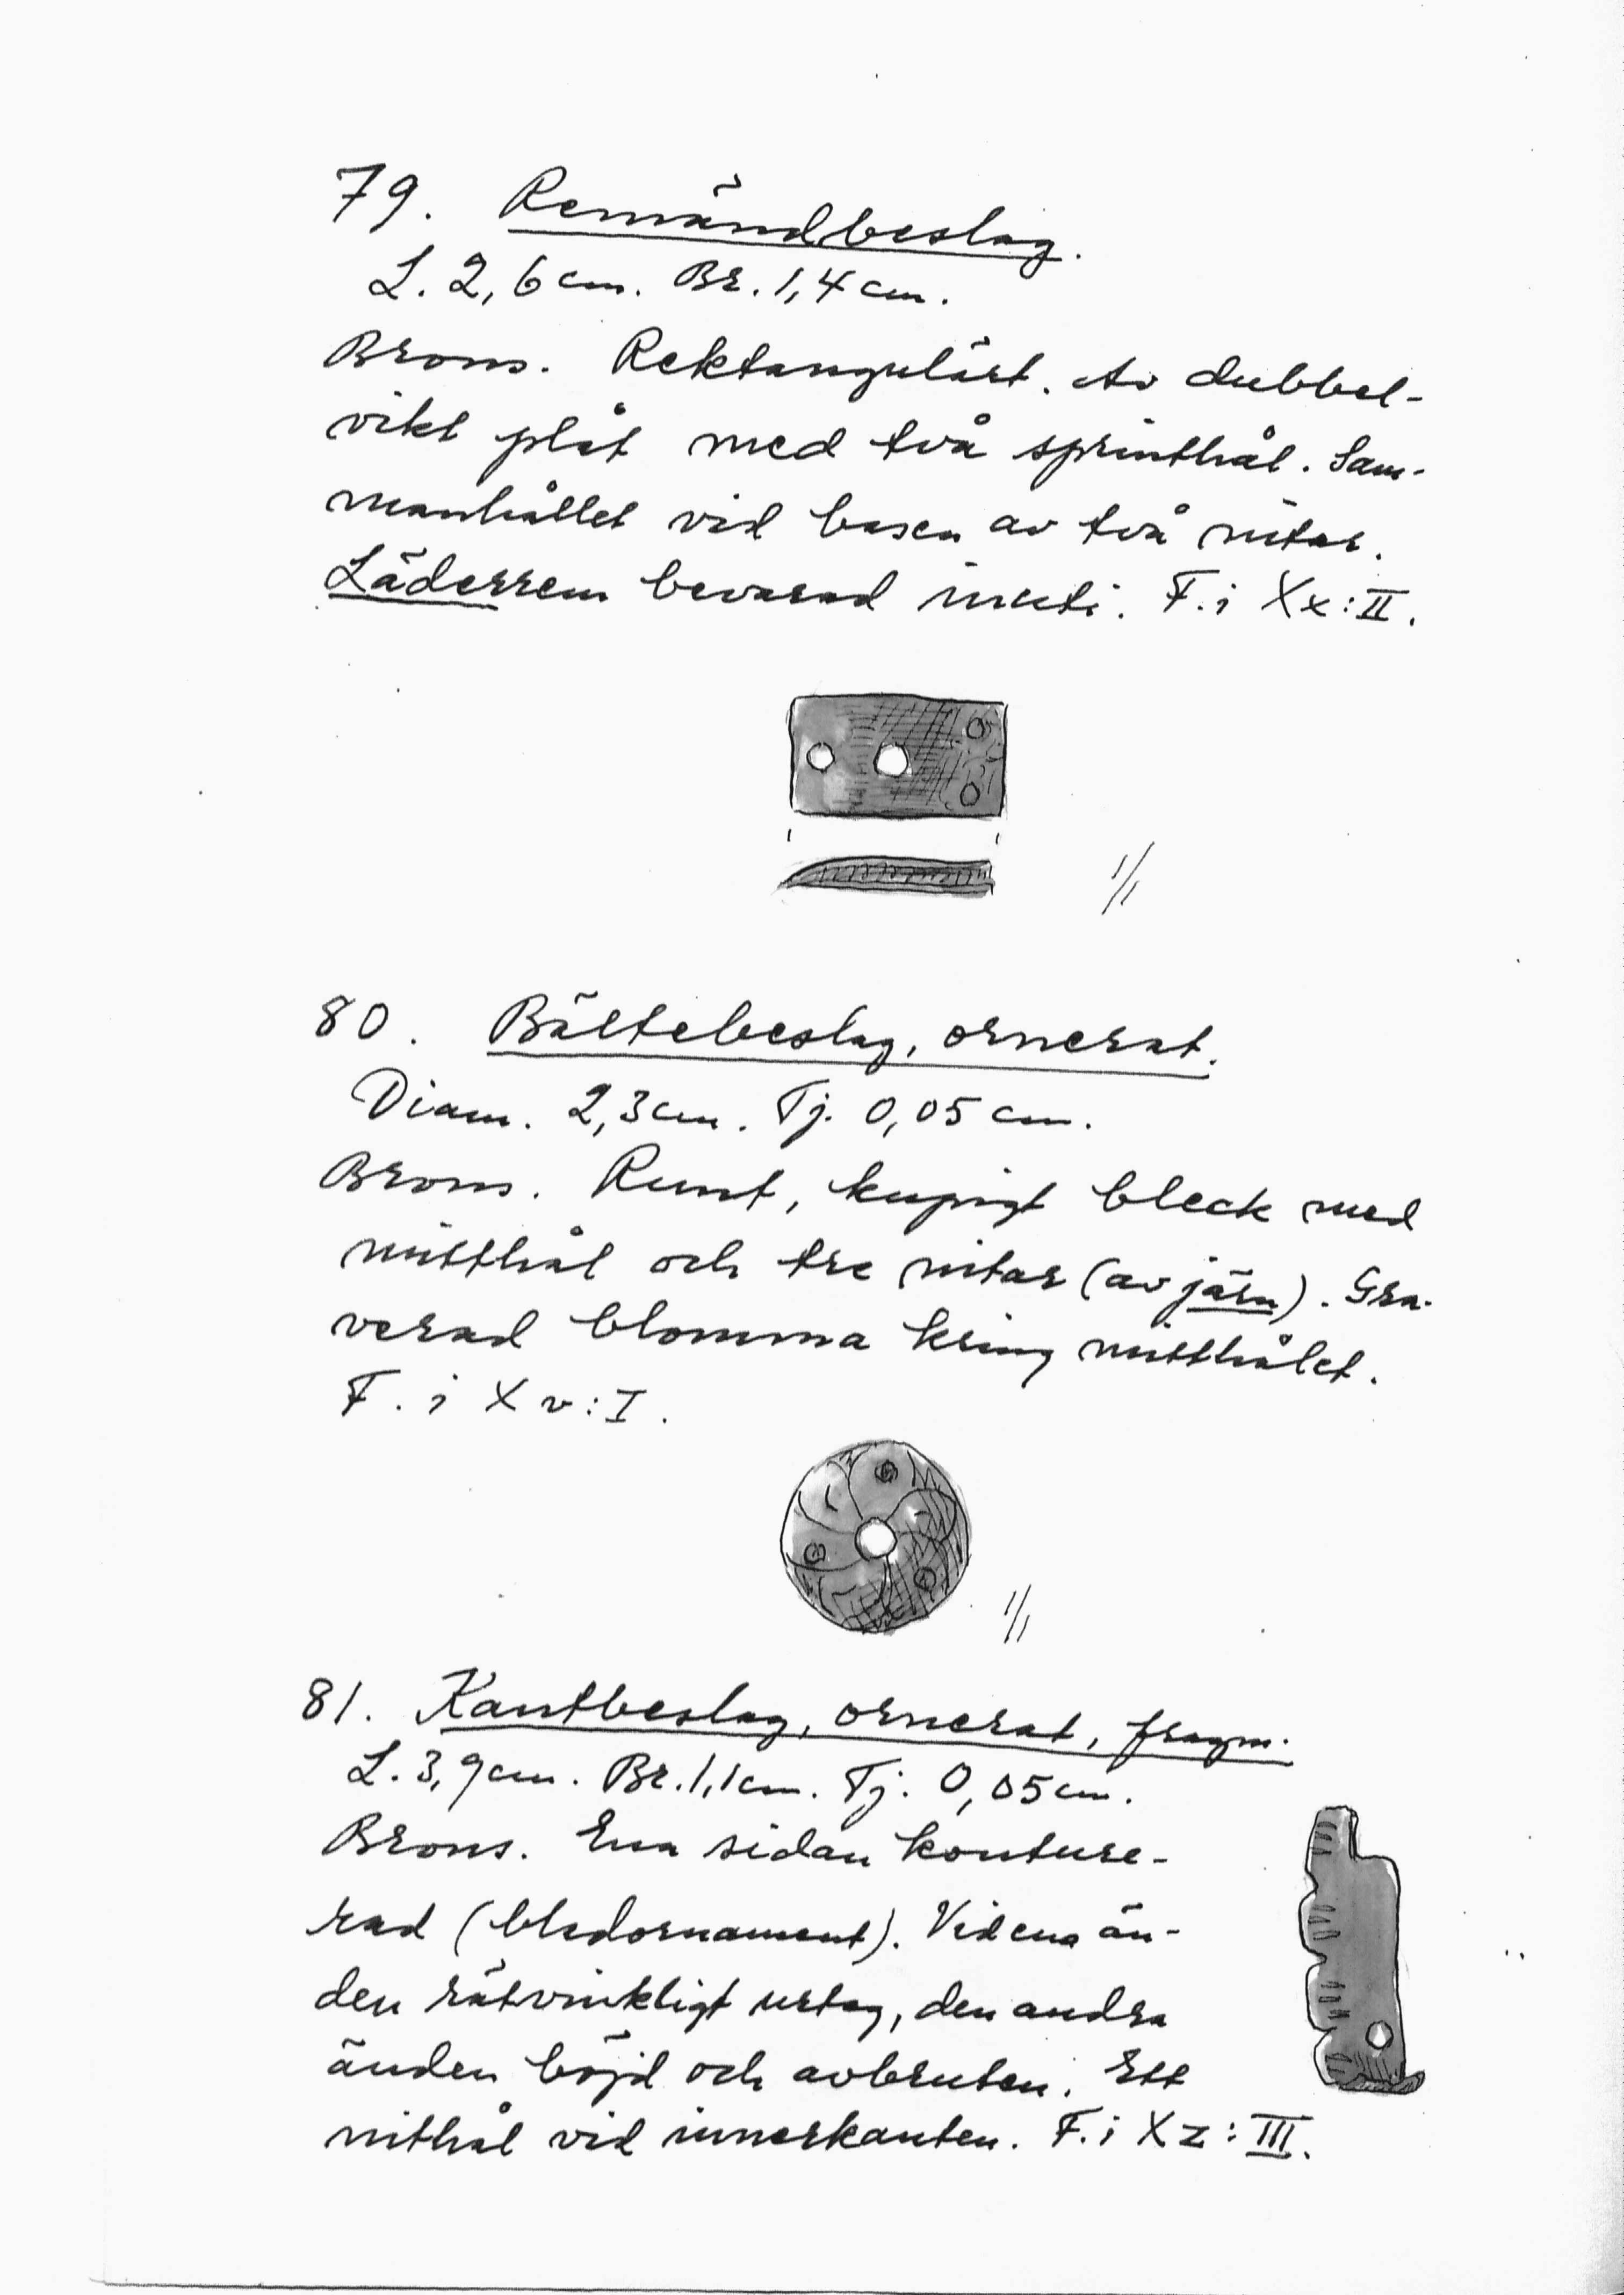 79. Remändbeslag.
L. 2,6 cm. Br. 1,4 cm.
Brons. Rektangulärt. Av dubbel-
vikt plåt med två sprinthål. Sam-
manhållet vid basen av två nitar.
Läderrem bevarad inuti. F. i Xx:II.
1/1
80. Bältebeslag, ornerat.
Diam. 2,3 cm. Tj. 0,05 cm.
Brons. Runt, kupigt bleck med
mitthål och tre nitar (av järn). Gra-
verad blomma kring mitthålet.
F. i Xv:I.
1/1
81. Kantbeslag, ornerat, fragm.
L. 3,9 cm. Br. 1,1 cm. Tj. 0,05 cm.
Brons. Ena sidan konture-
rad (bladornament). Vid ena än-
den rätvinkligt urtag, den andra
änden böjd och avbruten. Ett
nithål vid innerkanten. F. i Xz:III.